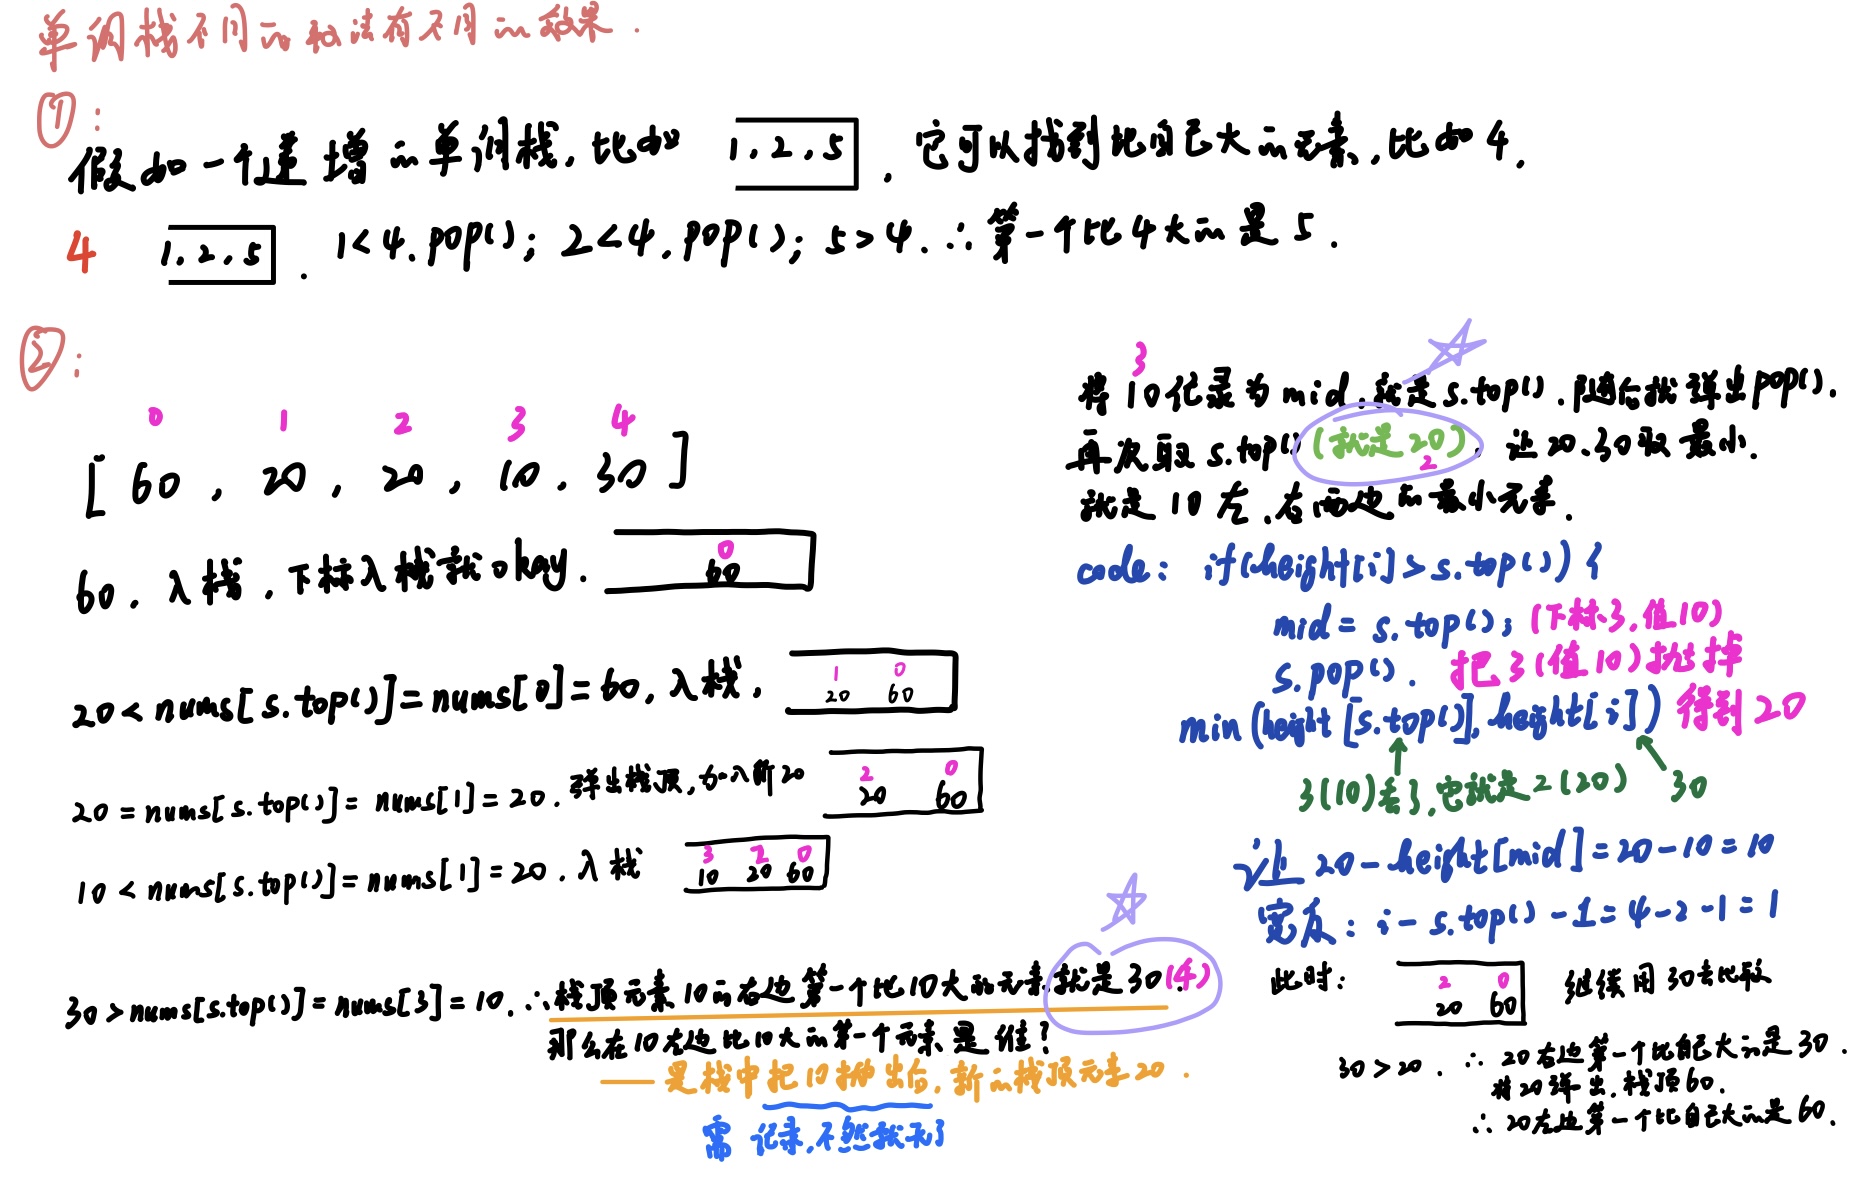 单调栈不同的放法有不同的效果.
①:
假如一个递增的单调栈,比如 1,2,5 . 它可以找到比自己大的元素,比如4.
4 1,2,5 . 1<4.pop(); 2<4,pop(); 5>4.∴第一个比4大的是5.
②:
0 1 2 3 4
[60, 20, 20, 10, 30]
60.入栈,下标入栈就okay.
0
60
20<nums[s.top()]=nums[0]=60,入栈,
1 0
20 60
20=nums[s.top()]=nums[1]=20.弹出栈顶,加入新20
2 0
20 60
10<nums[s.top()]=nums[1]=20.入栈
3 2 0
10 20 60
30>nums[s.top()]=nums[3]=10.∴栈顶元素10的右边第一个比10大的元素就是30(4).
那么在10左边比10大的第一个元素是谁?
—— 是栈中把10抛出后,新的栈顶元素20.
需记录,不然就无了
3
将10记录为mid.就是s.top().随后就弹出pop().
再次取s.top()(就是20),让20、30取最小.
2
就是10左、右两边的最小元素.
code: if(height[i]>s.top()){
mid = s.top(); (下标3,值10)
s.pop(). 把3(值10)抛掉
min(height[s.top()],height[i]) 得到20
3(10)丢了,它就是2(20) 30
让20-height[mid]=20-10=10
宽度: i-s.top()-1=4-2-1=1
此时: 继续用30去比较
2 0
20 60
30>20.∴20右边第一个比自己大的是30.
将20弹出,栈顶60.
∴20左边第一个比自己大的是60.